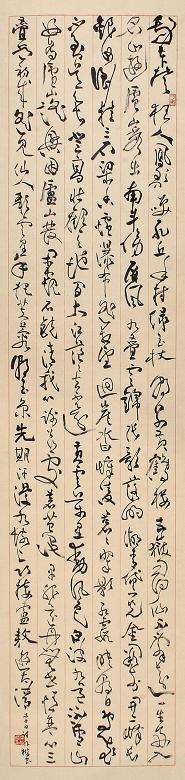 我本楚狂人鳳歌笑孔丘手持綠玉杖朝別黃鶴樓五嶽尋仙不辭遠一生好入
名山遊廬山秀出南斗傍屏風九疊雲錦張影落明湖青黛光金闕前開二峰長
銀河倒挂三石梁香爐瀑布遙相望迴崖沓嶂凌蒼蒼翠影紅霞映朝日鳥飛不到
吳天長登高壯觀天地間大江茫茫去不還黃雲萬里動風色白波九道流雪山
好為廬山謠興因廬山發閑窺石鏡清我心謝公行處蒼苔沒早服還丹無世情琴心三
疊道初成遙見仙人彩雲裏手把芙蓉朝玉京先期汗漫九垓上願接盧敖遊太清